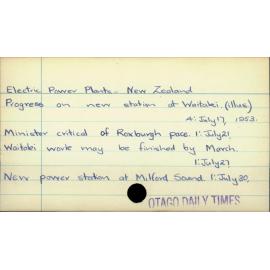 Electric Power Plants - New Zealand
Progress on new station at Waitaki. (illus)
4: July 17, 1953.
Minister critical of Roxburgh pace. 1: July 21
Waitaki work may be finished by March.
1: July 27
New power station at Milford Sound. 1: July 30.
OTAGO DAILY TIMES